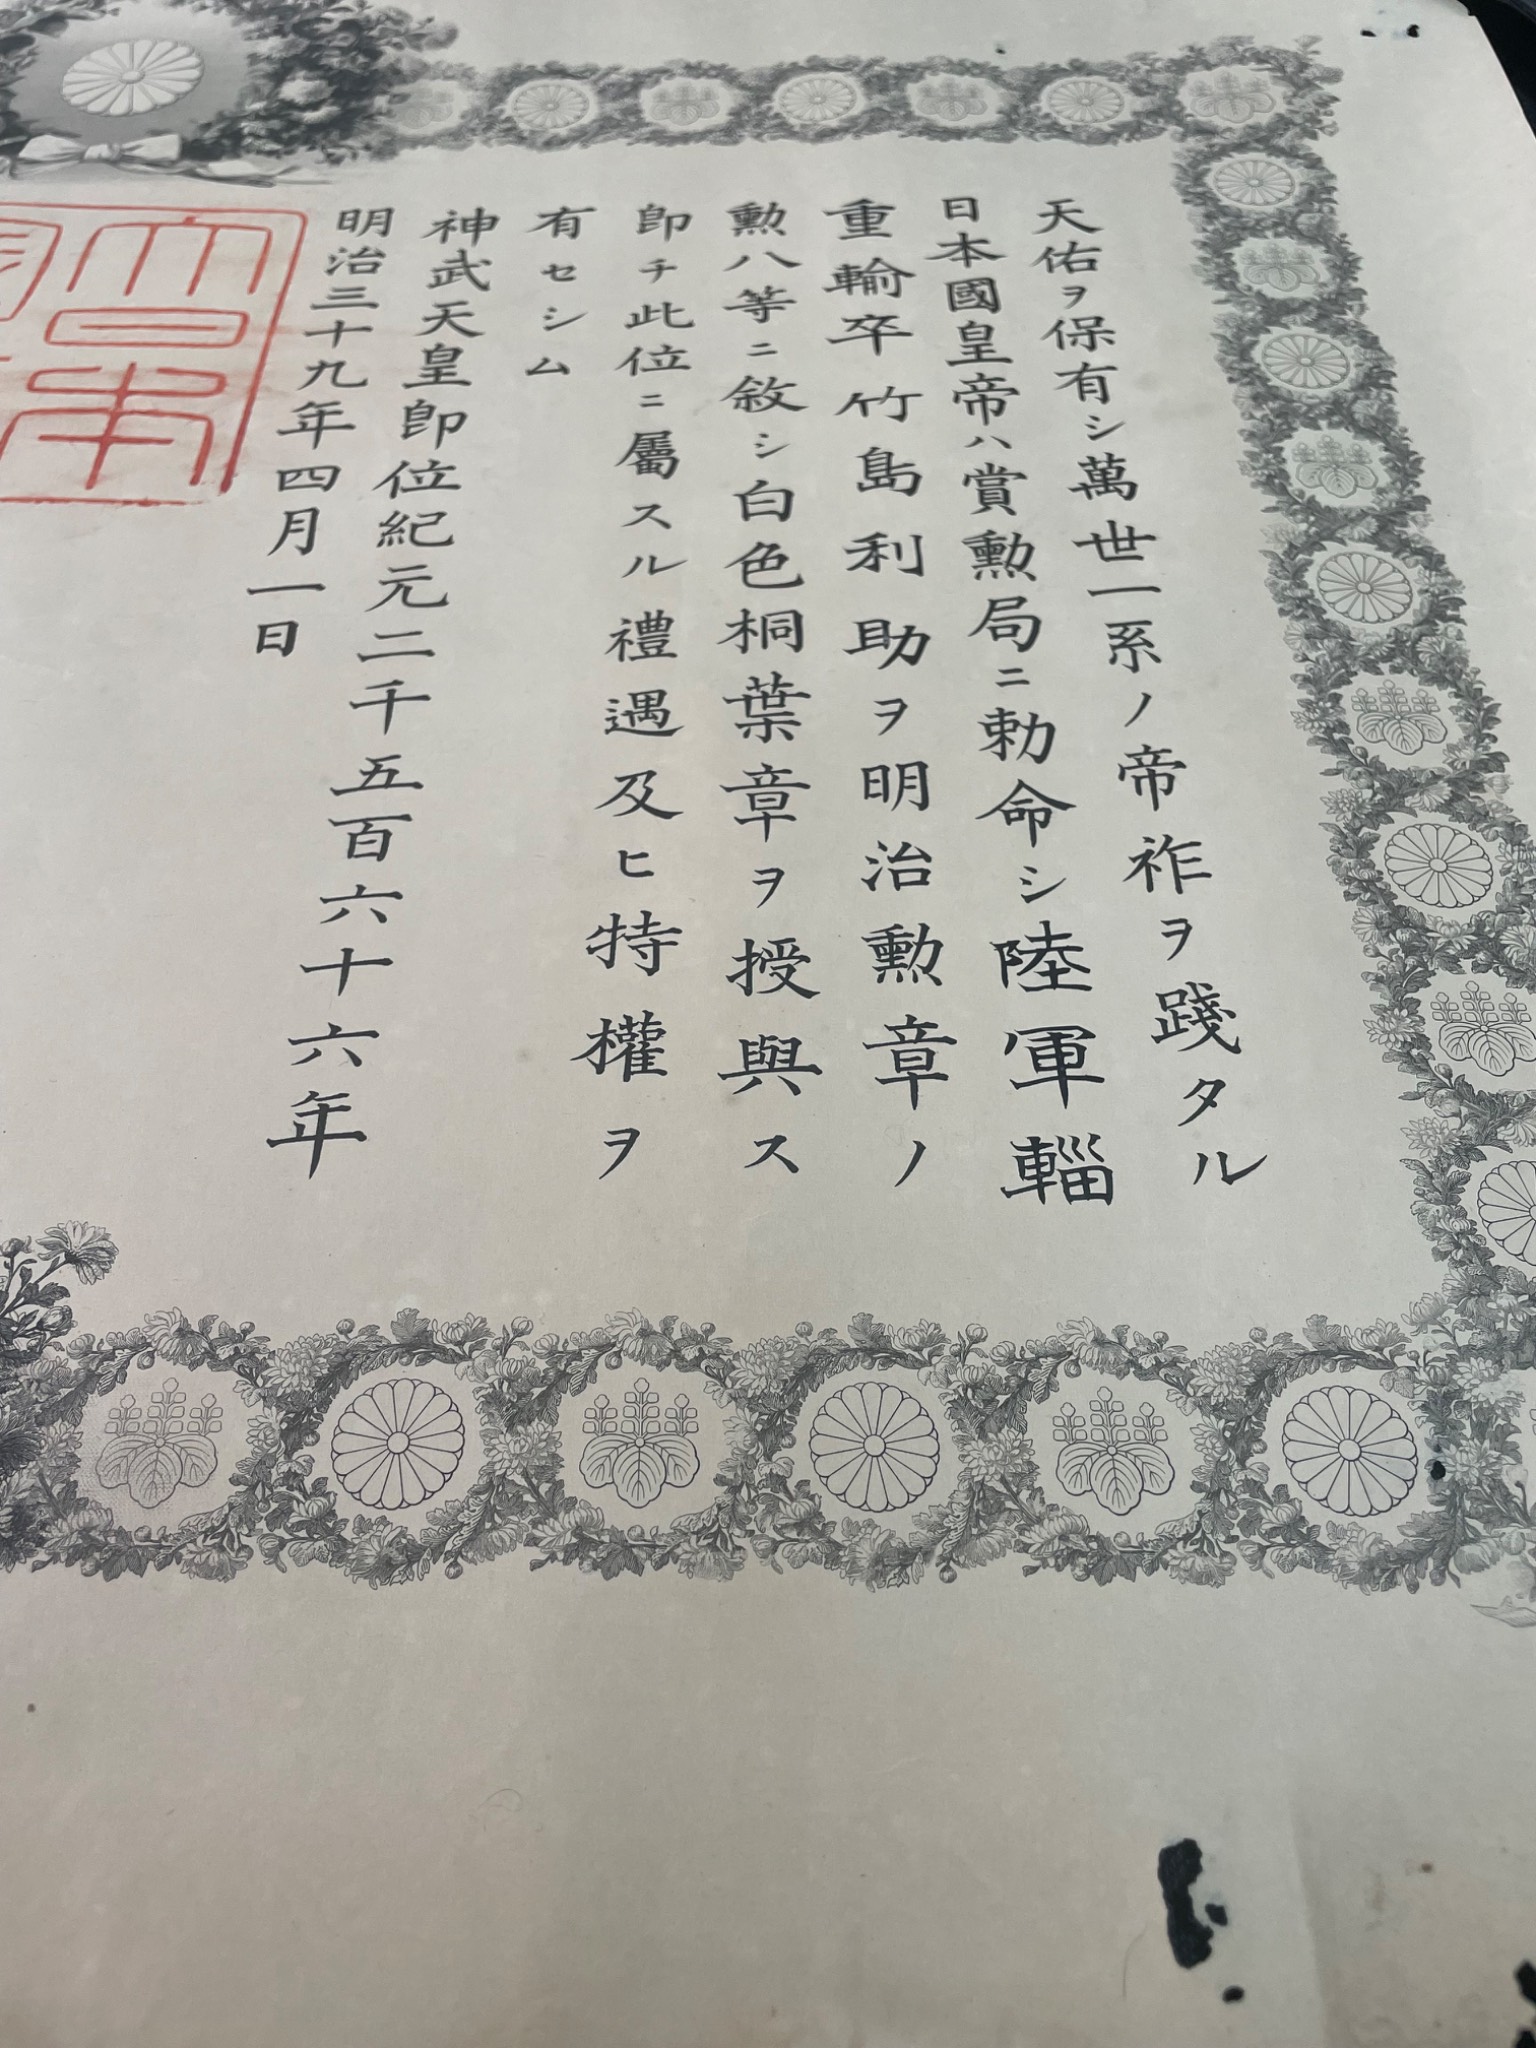 天佑ヲ保有シ萬世一系ノ帝祚ヲ踐タル
日本國皇帝ハ賞勲局ニ勅命シ陸軍輜
重輸卒竹島利助ヲ明治勲章ノ
勲八等ニ敘シ白色桐葉章ヲ授與ス
卽チ此位ニ屬スル禮遇及ヒ特權ヲ
有セシム
神武天皇卽位紀元二千五百六十六年
明治三十九年四月一日
大日本